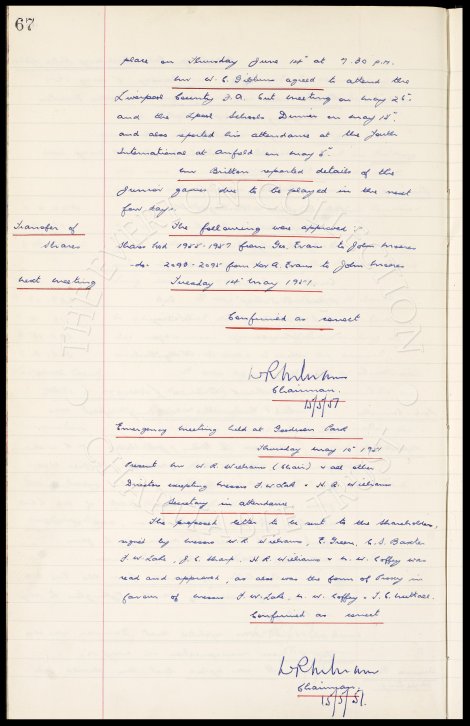 67
place on Thursday June 14th at 7.30 p.m.
Mr W. C. Gibbins agreed to attend the
Liverpool County F.A. Cup meeting on May 25th
and the Lpool Schools Dinner on May 18th
and also reported his attendance at the Youth
International at Anfield on May 5th
Mr Britton reported details of the
Junior games due to be played in the next
few days.
Transfer of Shares
The following were approved:
Shares Nod 1955-1957 from Geo. Evans to John Moores
-do- 2090-2095 from A. Evans to John Moores
next meeting
Tuesday 14th May 1957.
Confirmed as correct
Chairman.
15/5/57
Emergency meeting held at Goodison Park
Thursday May 10th 1957
Present Mr W. R. Williams (Chair) & all other
Directors excepting Messrs F. W. Lake & H. R. Williams
Secretary in attendance
The proposed letter to be sent to the Shareholders,
signed by Messrs W. R. Williams, E. Green, C. S. Baxter
F. W. Lake, J. C. Sharp, H. R. Williams & N. W. Coffey was
read and approved, as also was the form of Proxy in
favour of Messrs F. W. Lake, N. W. Coffey & T. C. Nuttall.
Confirmed as correct
Chairman.
15/5/57.
THE EVERTON COLLECTION
CHARITABLE TRUST